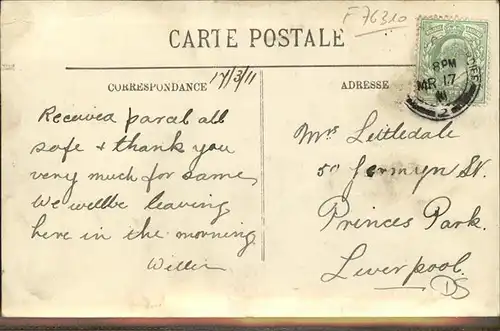 F 76310
CARTE POSTALE
8 PM
MR 17
11
CORRESPONDANCE 17/3/11
ADRESSE
Received parcel all
safe & thank you
very much for same,
We willbe leaving
here in the morning
Willie
Mrs Littledale
50 Jermyn St.
Princes Park.
Liverpool.
DS